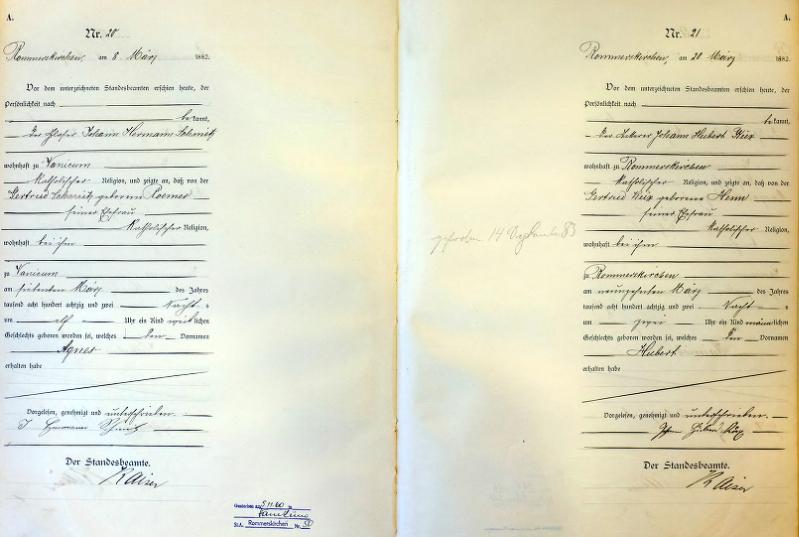 A.
Nr. 20
Rommerskirchen, am 8 März 1882.
Vor dem unterzeichneten Standesbeamten erschien heute, der
Persönlichkeit nach
bekannt,
der Johann Hermann Schmitz
wohnhaft zu Vanicum
katholischer Religion, und zeigte an, daß von der
Gertrud Schmitz geborene Roemer
seiner Ehefrau
katholischer Religion,
wohnhaft bei ihm
zu Vanicum
am siebenten März des Jahres
tausend acht hundert achtzig und zwei Nachts
um elf Uhr ein Kind weiblichen
Geschlechts geboren worden sei, welches den Vornamen
Agnes
erhalten habe
Vorgelesen, genehmigt und unterschrieben.
J Hermann Schmitz
Der Standesbeamte.
Kaiser
Gestorben am 5.11.60 in
St.A. Rommerskirchen Nr.
A.
Nr. 21
Rommerskirchen, am 20 März 1882.
Vor dem unterzeichneten Standesbeamten erschien heute, der
Persönlichkeit nach
bekannt,
der Ackerer Johann Hubert
wohnhaft zu Rommerskirchen
katholischer Religion, und zeigte an, daß von der
Gertrud geborene Henn
seiner Ehefrau
katholischer Religion,
wohnhaft bei ihm
zu Rommerskirchen
am neunzehnten März des Jahres
tausend acht hundert achtzig und zwei Nachts
um zwei Uhr ein Kind männlichen
Geschlechts geboren worden sei, welches den Vornamen
Hubert
erhalten habe
Vorgelesen, genehmigt und unterschrieben.
Der Standesbeamte.
Kaiser
gestorben 14 Dezember 83